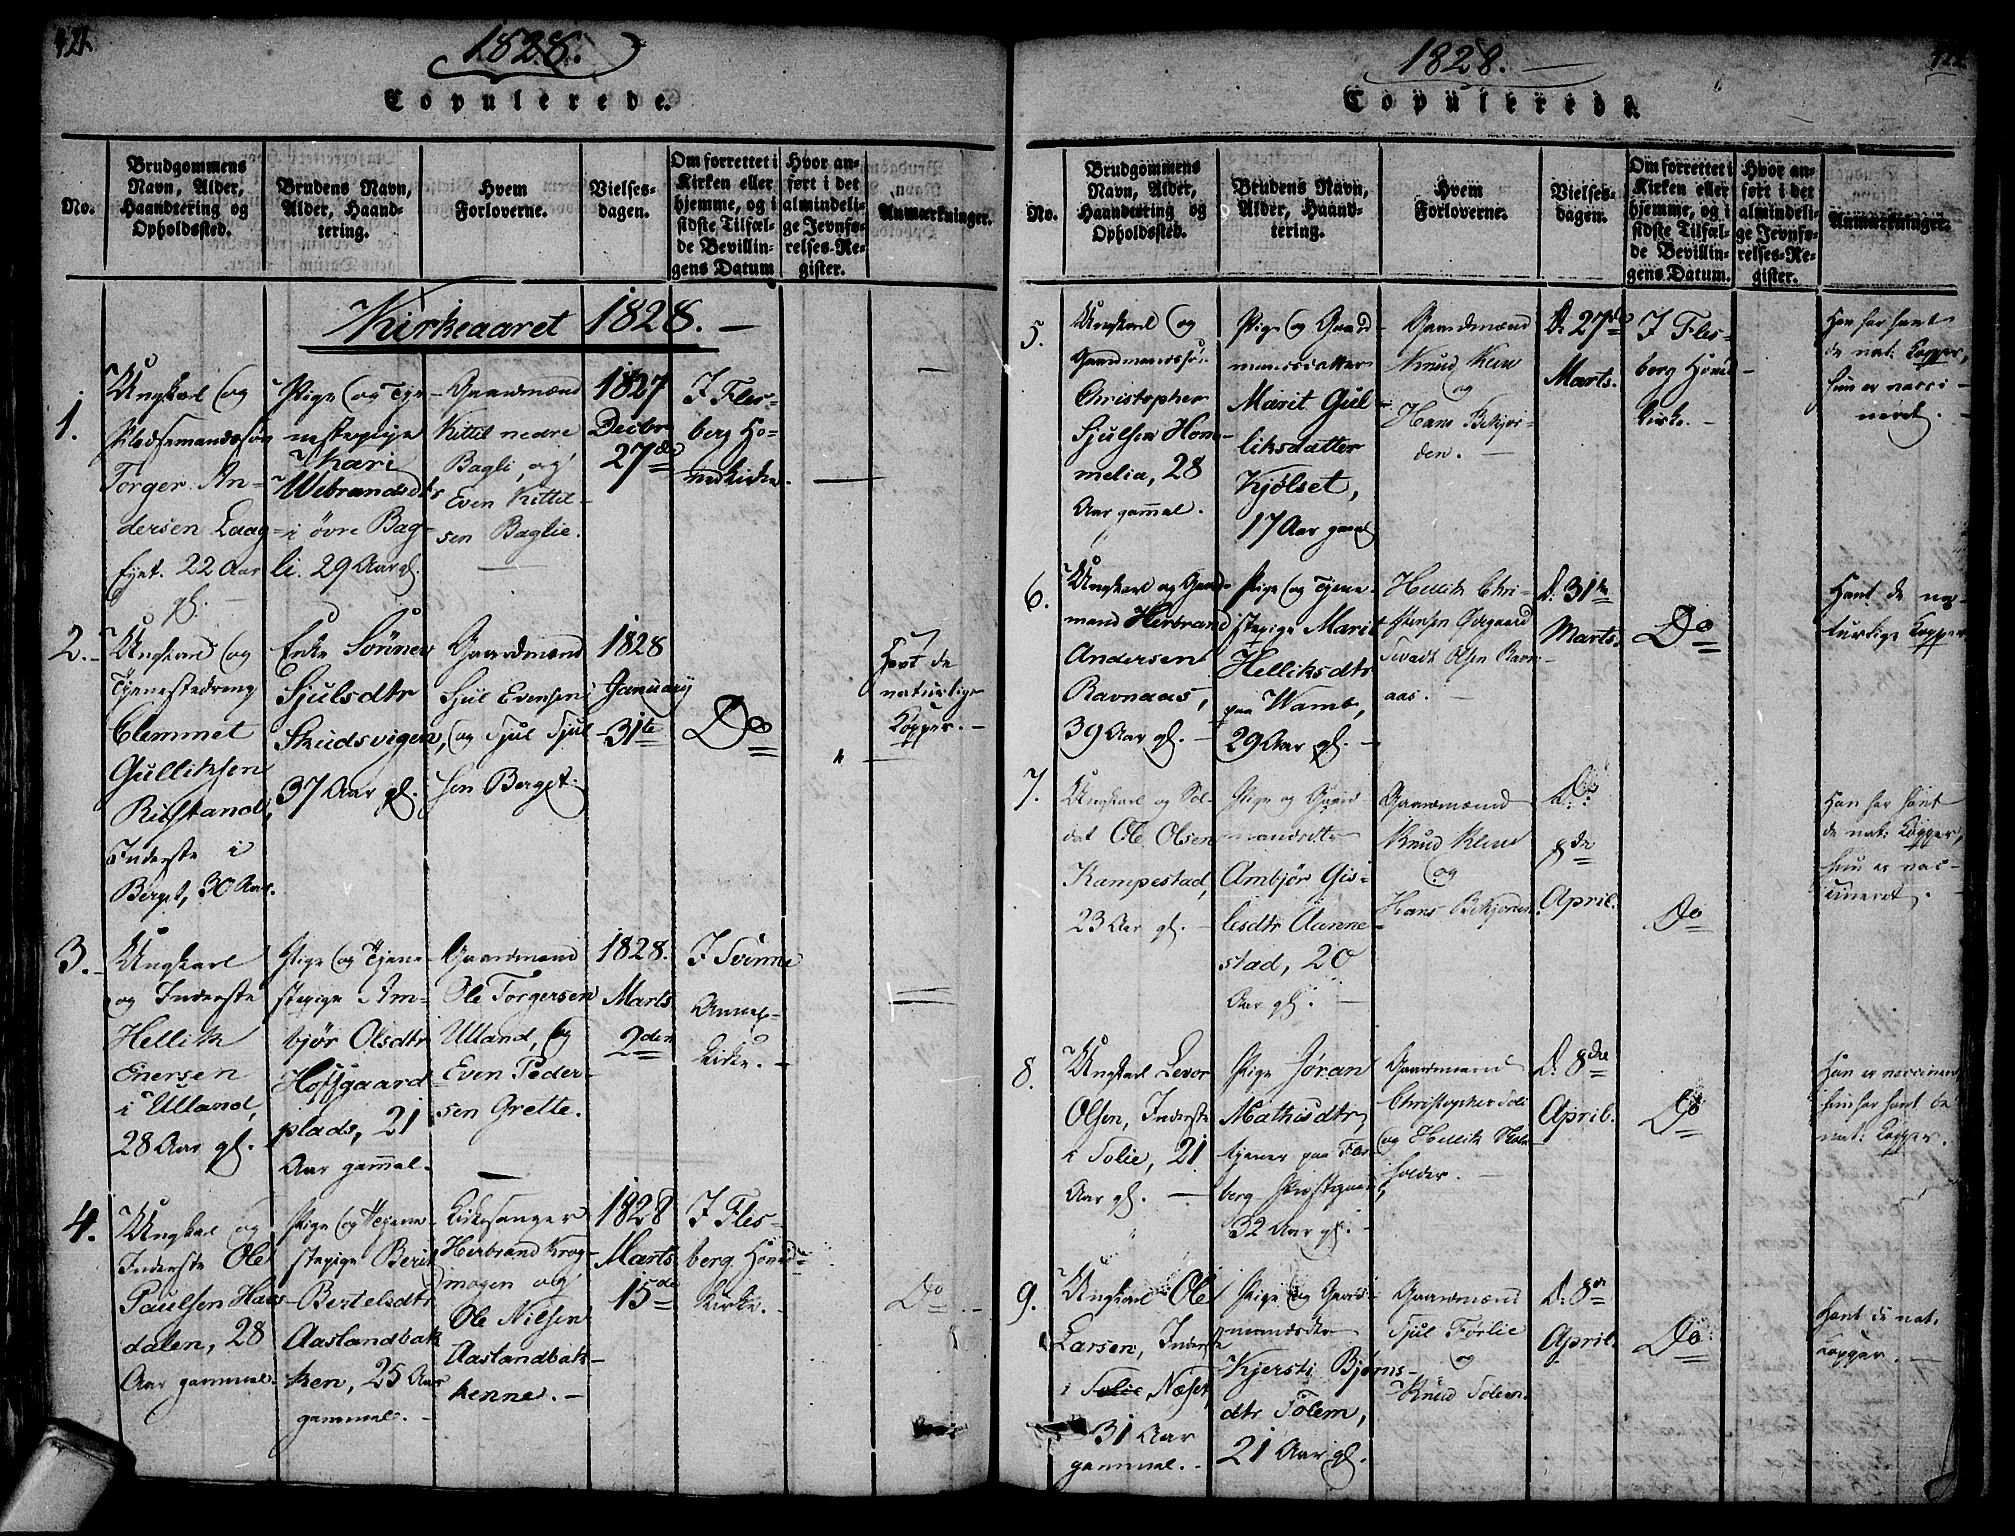 421.
1828.
Copulerede.
No.
Brudgommens
Navn, Alder,
Haandtering og
Opholdssted.
Brudens Navn,
Alder, Haand-
tering.
Hvem
Forloverne.
Vielses-
dagen.
Om forrettet i
Kirken eller
hjemme, og i
sidste Tilfæl-
de Bevillin-
gens Datum
Hvor an-
ført i det
almindeli-
ge Jevnfø-
relses-Re-
gister.
Anmærkninger.
Kirkeaaret 1828. —
1.
Ungkarl og
Pladsemandssøn
Torger An-
dersen Laag-
Ejet. 22 Aar
gl.
Pige og Tje-
nestepige
Kari
Webrandsdtr
i övre Bag-
li. 29 Aar gl.
Gaardmænd
Kittil nedre
Bagli, og
Even Kittil-
sen Baglie.
1827
Decbr
27de
I Fles-
berg Ho-
vedkirke.
2.
Ungkarl og
Tjenestedreng
Clemmet
Gulliksen
Rustand,
Inderste i
Berget, 30 Aar.
Enke Sönnev
Sjulsdtr
Skudsvigen,
37 Aar gl.
Gaardmænd
Sjul Evensen
og Sjul Sjul-
sen Berget.
1828
January
31te
Do
Havt de
naturlige
Kopper. —
3.
Ungkarl
og Inderste
Hellik
Enersen
i Ulland,
28 Aar gl.
Pige og Tjene-
stepige Am-
björ Olsdtr
Hoffgaard-
plads, 21
Aar gammel.
Gaardmænd
Ole Torgersen
Ulland, og
Even Peder-
sen Grette.
1828.
Marts
2den
I Svinne
Annex-
kirke. —
4.
Ungkarl og
Inderste Ole
Paulsen Haas-
dalen, 28
Aar gammel.
Pige og Tjene-
stepige Berit
Bertelsdtr
Aaslandbak-
ken, 25 Aar
gammel. —
Kirkesanger
Herbrand Krog-
mogen og
Ole Nilsen
Aaslandbak-
kenne. —
1828
Marts
15de
I Fles-
berg Hoved-
kirke.
Do. —
422
1828. —
Copulerede.
No.
Brudgommens
Navn, Alder,
Haandtering og
Opholdssted.
Brudens Navn,
Alder, Haand-
tering.
Hvem
Forloverne.
Vielses-
dagen.
Om forrettet i
Kirken eller
hjemme, og i
sidste Tilfæl-
de Bevillin-
gens Datum.
Hvor an-
ført i det
almindeli-
ge Jevnfø-
relses-Re-
gister.
Anmærkninger.
5.
Ungkarl og
Gaardmandssøn
Christopher
Sjulsen Hom-
melia, 28
Aar gammel.
Pige og Gaard-
mansdatter
Marit Gul-
liksdatter
Kjölset,
17 Aar gaml
Gaardmænd
Knud Kleve
og
Hans Bekjor-
den. —
D. 27de
Marts.
I Fles-
berg Hoved-
kirke. —
Han har havt
de nat: Kopper,
hun er vacci-
neret. —
6.
Ungkarl og Gaard-
mand Herbrand
Andersen
Ravnaas,
39 Aar gl. —
Pige og Tjene-
stepige Marit
Helliksdtr
paa Wamb.,
29 Aar gl. —
Hellik Chri-
stensen Ødegaard
Olsen Ravn-
aas. —
D. 31te
Marts.
Do
Havt de na-
turlige Kopper
7.
Ungkarl og Sol-
dat Ole Olsen
Kampestad,
23 Aar gl. —
Pige og Gaard-
mandsdtr
Ambjör Gis-
lesdtr Aanne-
stad, 20
Aar gl. —
Gaardmænd
Knud Kleve
og
Hans Bekjorden.
D.
8de
April.
Do
Han har havt
de nat: Kopper,
hun er vac-
cineret.
8.
Ungkarl Levor
Olsen, Inderste
i Tolie, 21
Aar gl. —
Pige Jöran
Mathisdtr,
tjener paa Fles-
berg Præstegaard,
32 Aar gl. —
Gaardmænd
Christopher Toli
og Hellik Skole-
holder. —
D. 8de
April.
Do
Han er vaccineret
hun har havt de
nat: Kopper.
9.
Ungkarl Ole
Larsen, Inderste
i Tolie Næset,
31 Aar
gammel. —
Pige og Gaard-
mandsdtr
Kjersti Björns-
dtr Tolem,
21 Aar gl.
Gaardmænd
Sjul Forlie
og
Knud Tolem.
D. 8de
April.
Do
Havt de nat.
Kopper. —